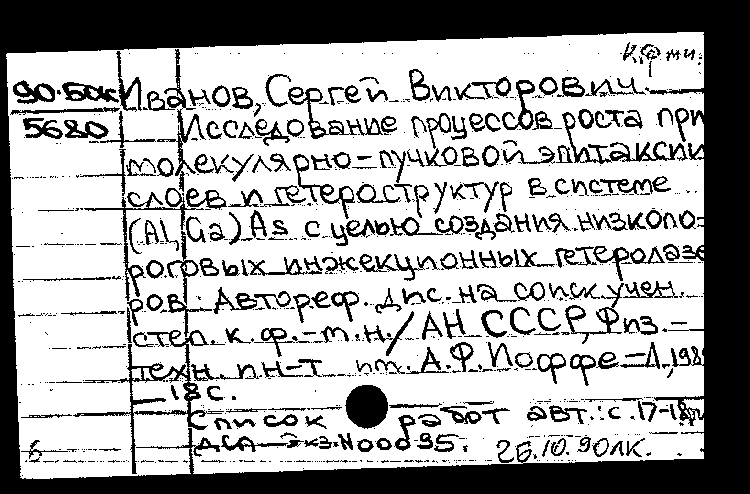 К.Ф-м.н.
90-50к Иванов, Сергей Викторович.
5680 Исследование процессов роста при
молекулярно-пучковой эпитаксии
слоев и гетероструктур в системе
(Al, Ga) As с целью создания низкопо-
роговых инжекционных гетеролазе
ров: Автореф. дис. на соиск учен.
степ. к. ф.-м.н. / АН СССР, Физ.-
техн. ин-т им. А.Ф. Иоффе - Л., 198
—18 с.
Список работ авт.: с. 17-18
ДСП - Экз. N00035.
6 26.10.90 ЛК.